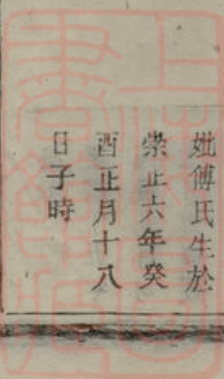 妣傅氏生於
崇正六年癸
酉正月十八
日子時